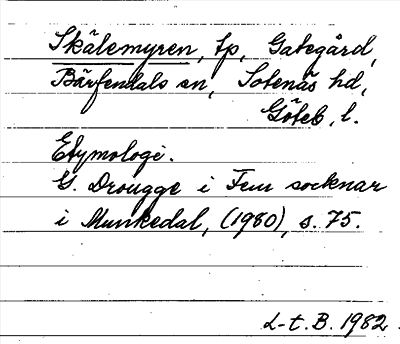 Skälemyren, tp, Gategård,
Bärfendals sn, Sotenäs hd,
Göteb. l.
Etymologi.
G. Drougge i Fem socknar
i Munkedal, (1980), s. 75.
L-t. B. 1982.